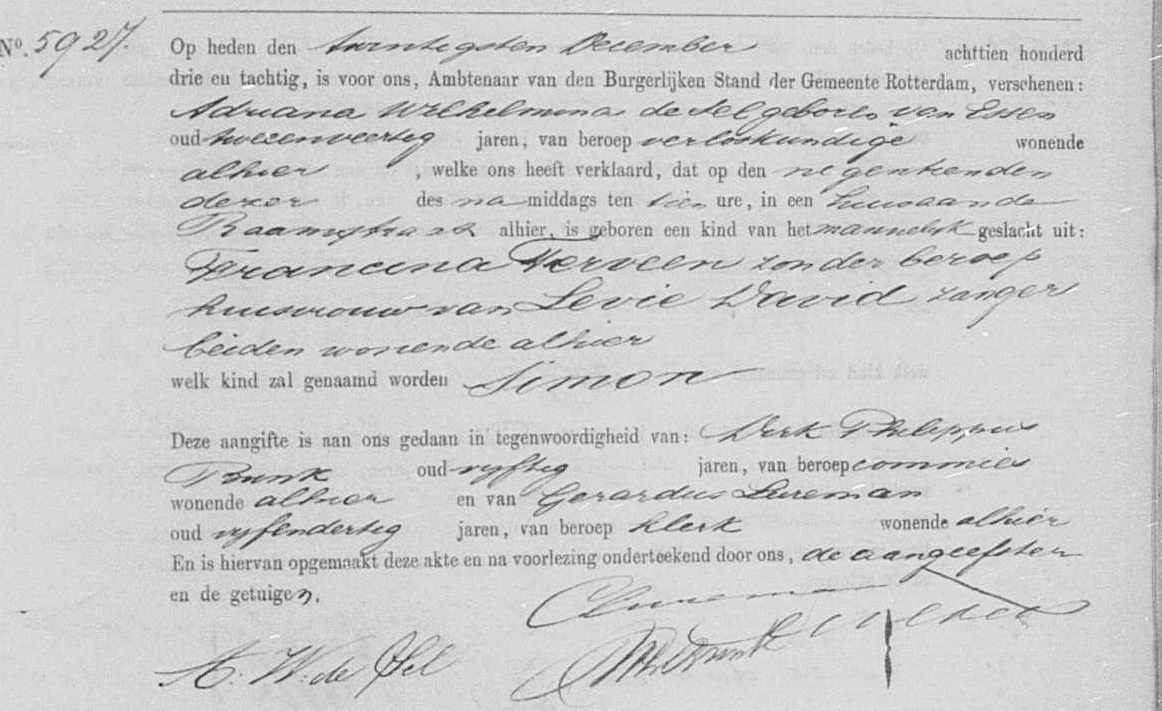 Nº. 5927. Op heden den twintigsten December achttien honderd
drie en tachtig, is voor ons, Ambtenaar van den Burgerlijken Stand der Gemeente Rotterdam, verschenen:
Adriana Wilhelmina de Sel geboren van Essen
oud tweeenveertig jaren, van beroep verloskundige wonende
alhier, welke ons heeft verklaard, dat op den negentienden
dezer des namiddags ten tien ure, in een huis aan de
Raamstraat alhier, is geboren een kind van het mannelijk geslacht uit:
Francina Verveen zonder beroep
huisvrouw van Levie David zanger
beiden wonende alhier
welk kind zal genaamd worden Simon
Deze aangifte is aan ons gedaan in tegenwoordigheid van: Dirk Philippus
oud vijftig jaren, van beroep commies
wonende alhier en van Gerardus Lureman
oud vijfendertig jaren, van beroep klerk wonende alhier
En is hiervan opgemaakt deze akte en na voorlezing onderteekend door ons, de aangeefster
en de getuigen.
A. W. de Sel